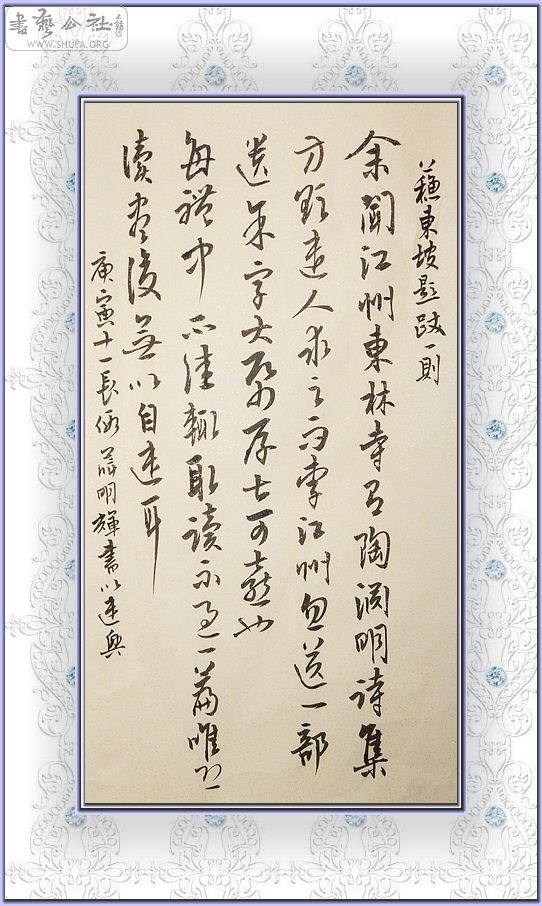 書藝公社
WWW.SHUFA.ORG
蘇東坡題跋一則
余聞江州東林寺有陶淵明詩集
方欲遣人求之而李江州忽送一部
遺余字大紙厚甚可喜也
每體中不佳輒取讀不過一篇唯恐
讀盡後無以自遣耳
庚寅十一長假明輝書以遣興